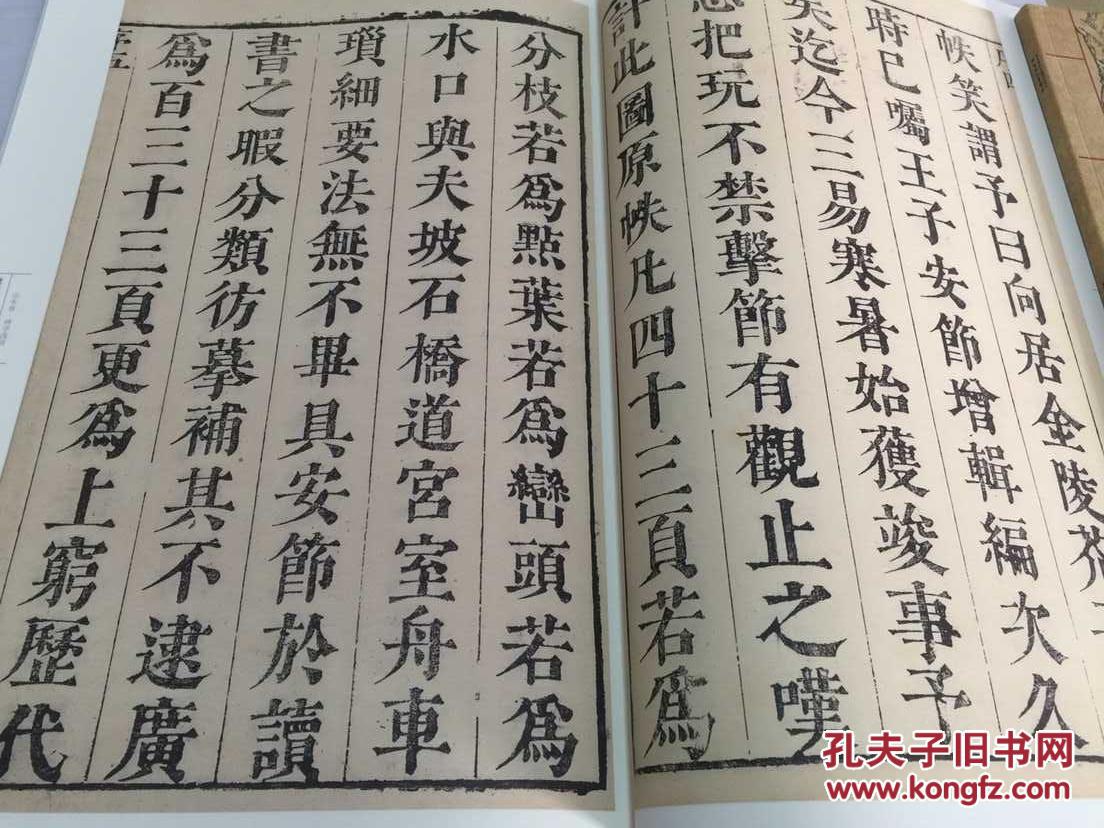 帙笑謂予曰向居金陵芥
時已囑王子安節增輯編次久
矣迄今三易寒暑始獲竣事予
把玩不禁擊節有觀止之嘆
計此圖原帙凡四十三頁若爲
分枝若爲點葉若爲巒頭若爲
水口與夫坡石橋道宮室舟車
瑣細要法無不畢具安節於讀
書之暇分類彷摹補其不逮廣
爲百三十三頁更爲上窮歷代
孔夫子旧书网
www.kongfz.com